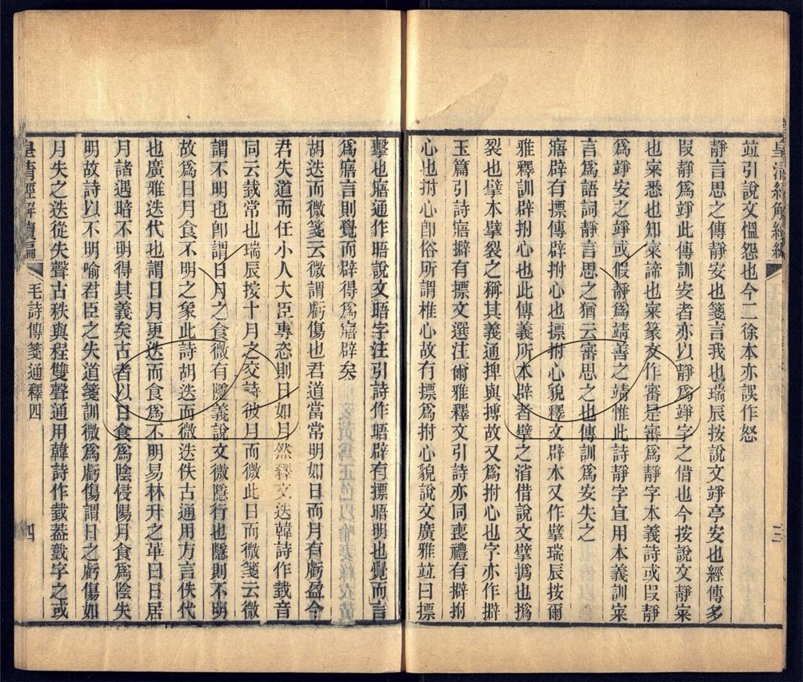 皇清經解續編 三
竝引說文慍怨也今二徐本亦誤作怒
靜言思之傳靜安也箋言我也瑞辰按說文竫亭安也經傳多
叚靜爲竫此傳訓安者亦以靜爲竫字之借也今按說文靜宷
也宷悉也知宷諦也宷篆文作審是審爲靜字本義詩或叚靜
爲竫安之竫或假靜爲靖善之靖惟此詩靜字宜用本義訓宷
言爲語詞靜言思之猶云審思之也傳訓爲安失之
寤辟有摽傳辟拊心也摽拊心貌釋文辟本又作擘瑞辰按爾
雅釋訓辟拊心也此傳義所本辟者擘之渻借說文擘撝也撝
裂也擘本擘裂之稱其義通捭與搏故又爲拊心也字亦作擗
玉篇引詩寤擗有摽文選注爾雅釋文引詩亦同喪禮有擗拊
心也拊心卽俗所謂椎心故有摽爲拊心貌說文廣雅竝曰摽
擊也寤通作晤說文晤字注引詩作晤辟有摽晤明也覺而言
爲寤言則覺而辟得爲寤辟矣
胡迭而微箋云微謂虧傷也君道當常明如日而月有虧盈今
君失道而任小人大臣專恣則日如月然釋文迭韓詩作臷音
同云臷常也瑞辰按十月之交詩彼月而微此日而微箋云微
謂不明也卽謂日月之食微有隱義說文微隱行也隱則不明
故爲日月食不明之象此詩胡迭而微迭佚古通用方言佚代
也廣雅迭代也謂日月更迭而食爲不明易林升之革曰日居
月諸遇暗不明得其義矣古者以日食爲陰侵陽月食爲陰失
明故詩以不明喻君臣之失道箋訓微爲虧傷謂日之虧傷如
月失之迭從失聲古秩與程雙聲通用韓詩作臷葢臷字之或
皇淸經解續編 毛詩傳箋通釋四 四